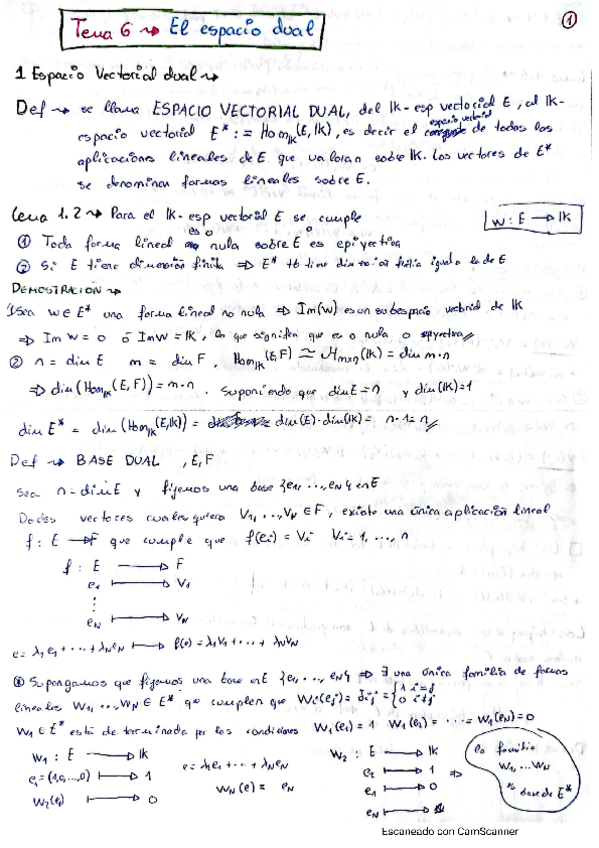 Tema 6 → El espacio dual
1
1 Espacio Vectorial dual →
Def → se llama ESPACIO VECTORIAL DUAL, del IK-esp vectorial E, al IK-
espacio vectorial E* := Hom_IK(E, IK), es decir el espacio vectorial de todas las
aplicaciones lineales de E que valoran sobre IK. Los vectores de E*
se denominan formas lineales sobre E.
Lema 1.2 → Para el IK-esp vectorial E se cumple
w : E → IK
① Toda forma lineal es o nula sobre E o es epiyectiva
② Si E tiene dimensión finita ⇒ E* tb tiene dimensión finita igual a la de E
DEMOSTRACIÓN →
① sea w ∈ E* una forma lineal no nula ⇒ Im(w) es un subespacio vectorial de IK
⇒ Im w = 0 ó Im w = IK, lo que significa que es o nula o epiyectiva
② n = dim E m = dim F, Hom_IK(E, F) ≃ (IK) = dim m·n
⇒ dim(Hom_IK(E, F)) = m·n. Suponiendo que dim E = n y dim(IK) = 1
dim E* = dim(Hom_IK(E, IK)) = dim(E)·dim(IK) = n·1 = n
Def → BASE DUAL , E, F
Sea n = dim E y fijemos una base {e1, ..., eN} en E
Dados vectores cualesquiera V1, ..., VN ∈ F, existe una única aplicación lineal
f : E → F que cumple que f(ei) = Vi ∀i = 1, ..., n
f : E → F
e1 ↦ V1
⋮
eN ↦ VN
e = λ1 e1 + ... + λN eN ↦ f(e) = λ1 V1 + ... + λN VN
Supongamos que fijamos una base en E {e1, ..., eN} ⇒ ∃ una única familia de formas
lineales W1, ..., WN ∈ E* que cumplen que Wi(ej) = δij = { 1 i=j
0 i≠j
W1 ∈ E* está determinada por las condiciones W1(e1) = 1 W1(e2) = ... = W1(eN) = 0
W1 : E → IK
e1 = (1,0,...,0) ↦ 1
W2(e1) ↦ 0
e = λ1e1 + ... + λNeN
WN(e) = eN
W2 : E → IK
e2 ↦ 1 ⇒
e1 ↦ 0
eN ↦
la familia
W1, ... WN
es base de E*
Escaneado con CamScanner